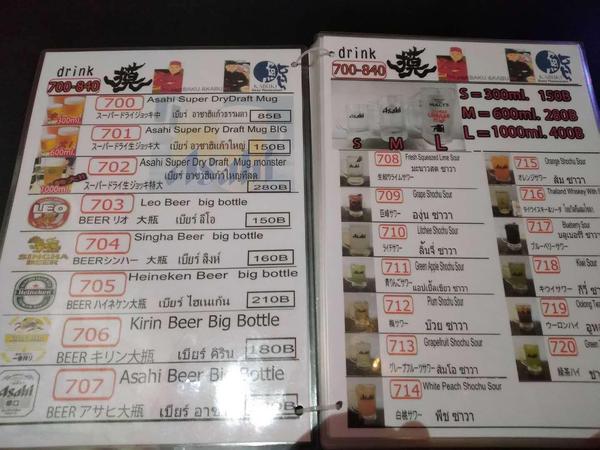 drink
700-840
700
Asahi Super DryDraft Mug
300ml.
スーパードライジョッキ中
เบียร์ อาซาฮีแก้วธรรมดา
85B
701
Asahi Super Dry Draft Mug BIG
600ml.
スーパードライ生ジョッキ大
เบียร์ อาซาฮีแก้วใหญ่
150B
702
Asahi Super Dry Draft Mug monster
1000ml
スーパードライ生ジョッキ特大
280B
703
Leo Beer big bottle
LEO
BEER リオ 大瓶
เบียร์ ลีโอ
150B
704
Singha Beer big bottle
SINGHA
BEERシンハー 大瓶
เบียร์ สิงห์
160B
705
Heineken Beer big bottle
Heineken
BEER ハイネケン大瓶
เบียร์ ไฮเนเก้น
210B
706
Kirin Beer Big Bottle
一番搾り
BEER キリン大瓶
เบียร์ คิริน
180B
707
Asahi Beer Big Bottle
Asahi
辛口
BEER アサヒ大瓶
drink
700-840
KABUKI
S = 300ml. 150B
M = 600ml. 280B
L = 1000ml. 400B
S M L
708
Fresh Squeezed Lime Sour
生絞りライムサワー
มะนาวสด ซาวา
709
Grape Shochu Sour
巨峰サワー
องุ่น ซาวา
710
Litchee Shochu Sour
ライチサワー
ลิ้นจี่ ซาวา
711
Green Apple Shochu Sour
青りんごサワー
แอปเปิ้ลเขียว ซาวา
712
Plum Shochu Sour
梅サワー
บ๊วย ซาวา
713
Grapefruit Shochu Sour
グレープフルーツサワー
ส้มโอ ซาวา
714
White Peach Shochu Sour
白桃サワー
พีช ซาวา
715
Orange Shochu Sour
オレンジサワー
ส้ม ซาวา
716
Thailand Whiskey With
タイウイスキー&ソーダ
717
Blueberry Sour
ブルーベリーサワー
บลูเบอร์รี่ ซาวา
718
Kiwi Sour
キウイサワー
กีวี่
719
Oolong Tea
ウーロンハイ
720
Green T
緑茶ハイ